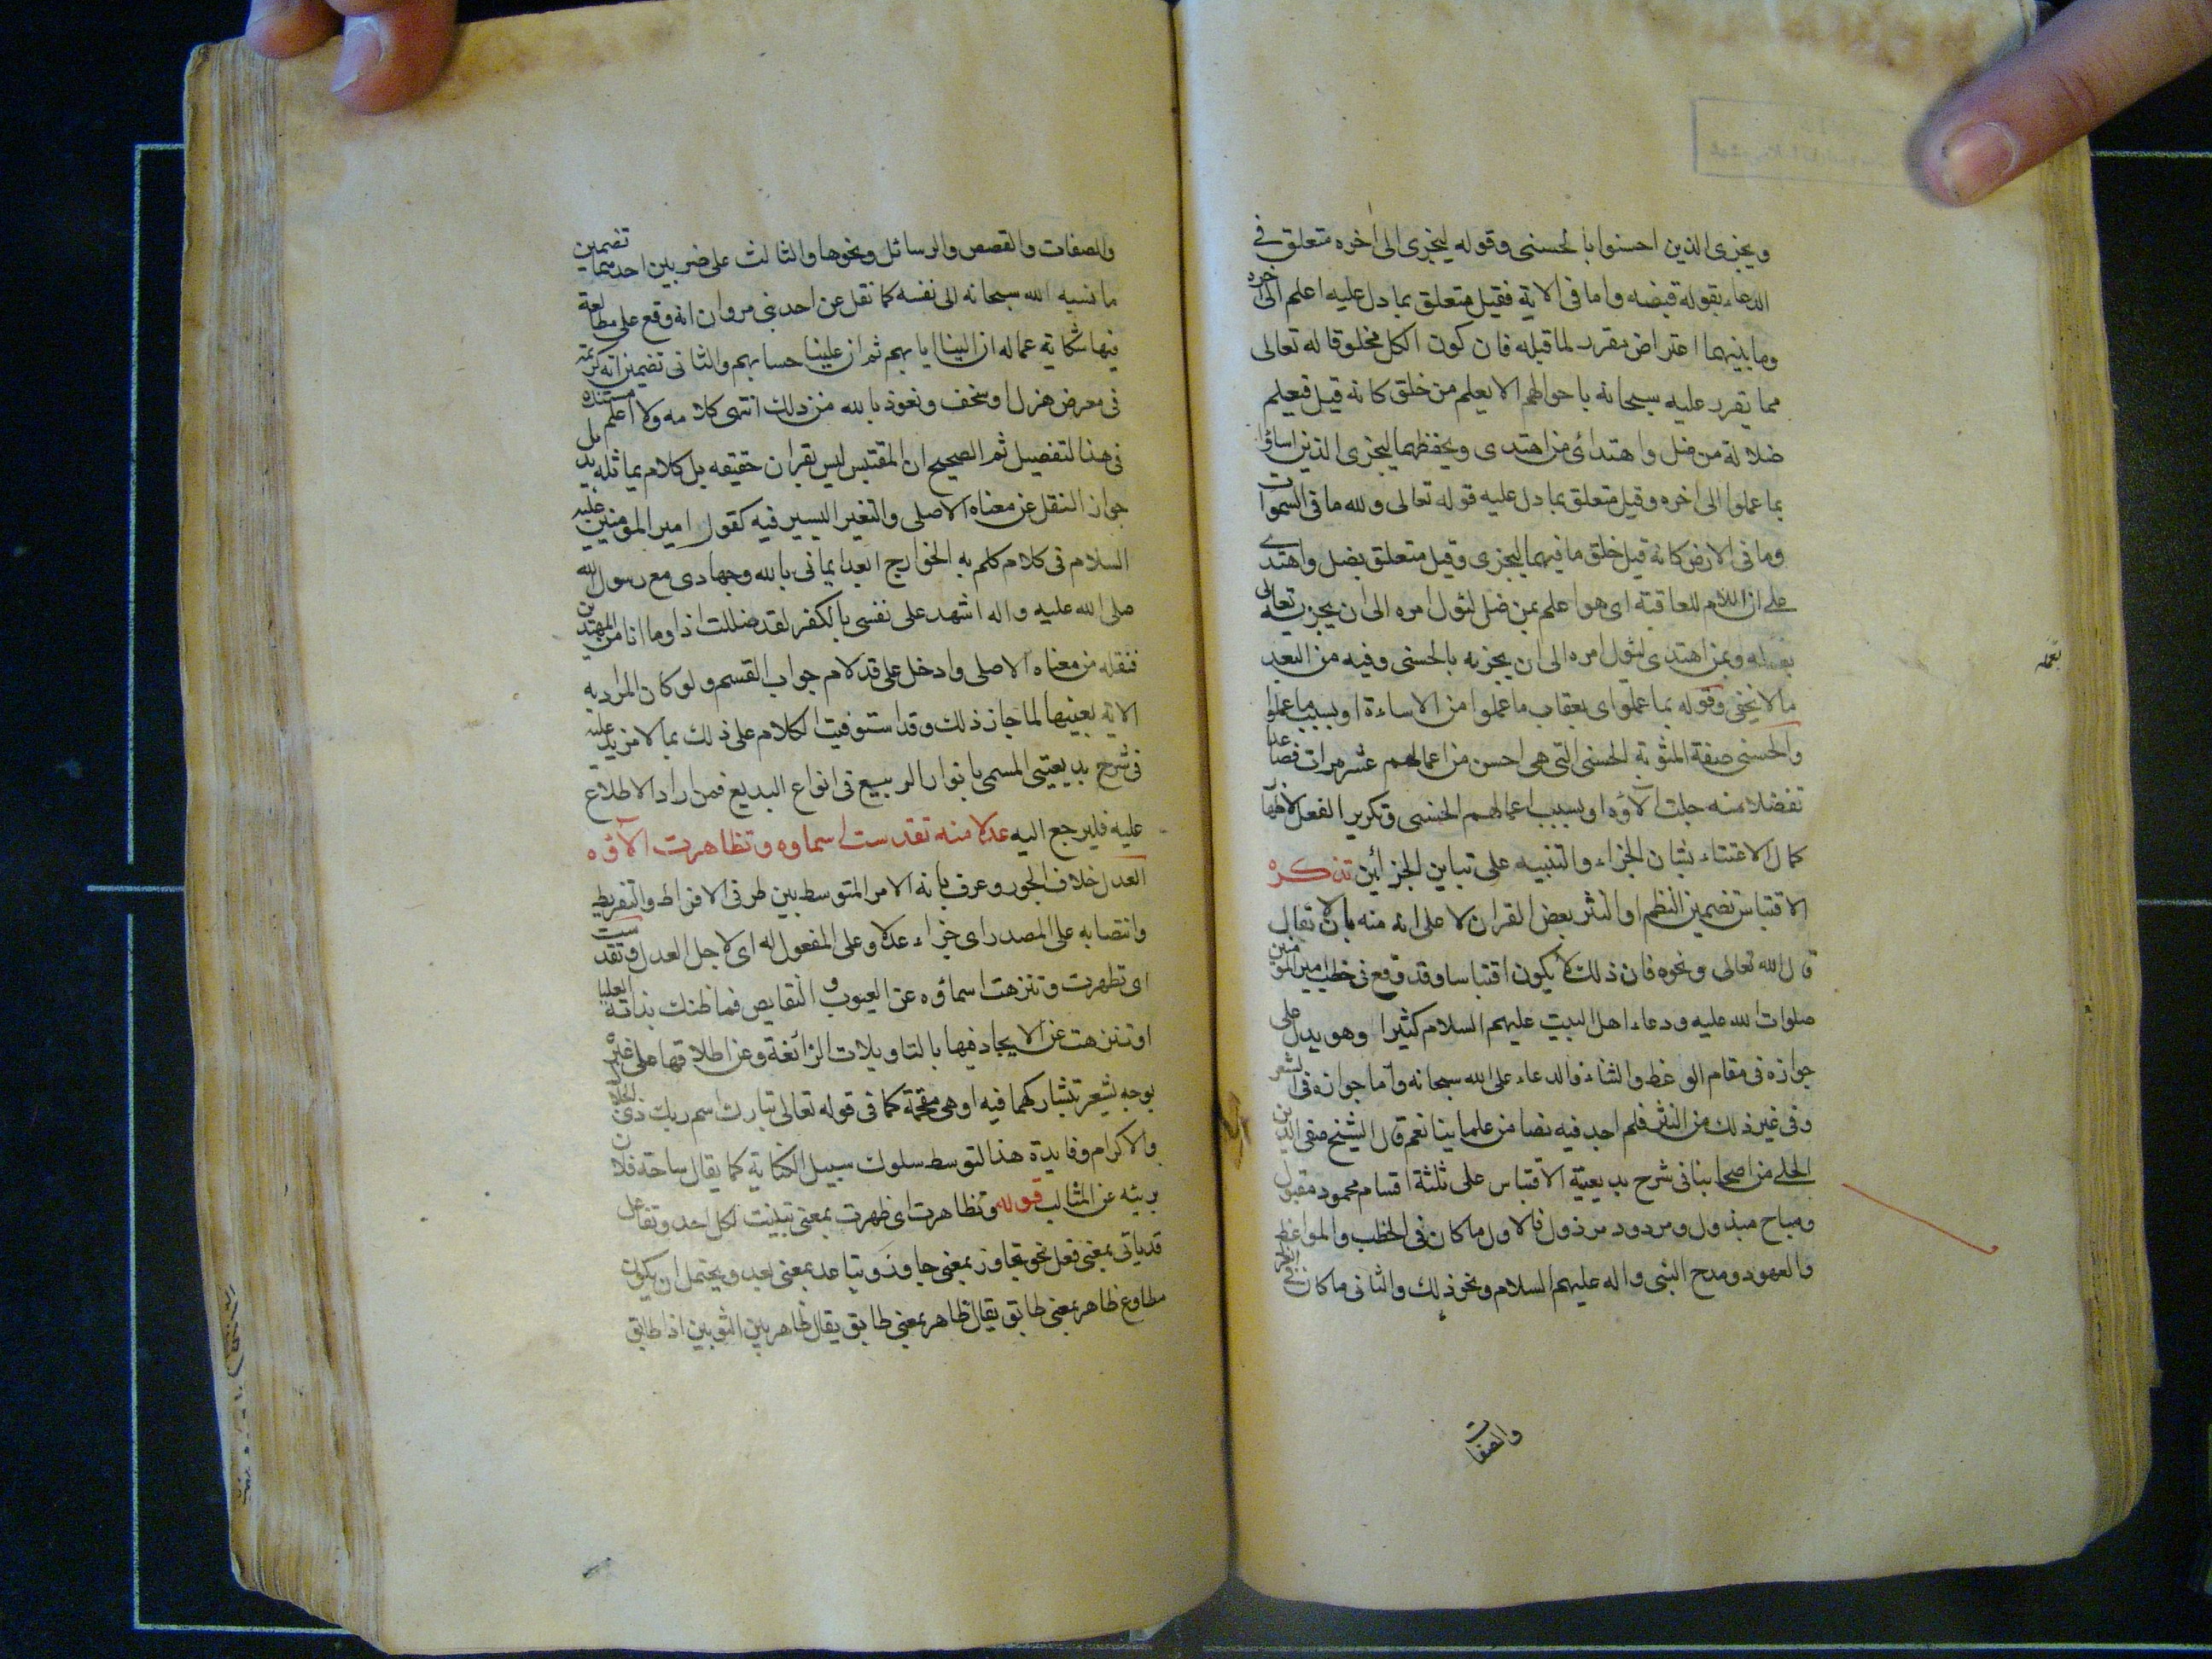 ويجزى الذين احسنوا بالحسنى وقوله ليجزى الى اخره متعلق في
الدعاء بقوله قبضه واما فى الاية فقيل متعلق بما دل عليه اعلم الى اخره
وما بينهما اعتراض مقرر لما قبله فان كون الكل مخلوقا له تعالى
مما تقرر عليه سبحانه باحوالهم الا يعلم من خلق كانه قيل فيعلم
ضلالة من ضل واهتدائى من اهتدى ويحفظهما ليجزى الذين اساؤا
بما عملوا الى اخره وقيل متعلق بما دل عليه قوله تعالى ولله ما فى السموات
وما فى الارض كانه قيل خلق ما فيهما ليجزى وقيل متعلق بضل واهتدى
على ان اللام للعاقبة اى هو اعلم بمن ضل ليؤل امره الى ان يجزيه تعالى
بعمله وبمن اهتدى ليؤل امره الى ان يجزيه بالحسنى وفيه من البعد
بعمله
ما لا يخفى وقوله بما عملوا اى بعقاب ما عملوا من الاساءة او بسبب ما عملوا
والحسنى صفة المثوبة الحسنى التى هى احسن من اعمالهم عشر مرات فصاعدا
تفضلا منه جلت الآؤه او بسبب اعمالهم الحسنى وتكرير الفعل لاظهار
كمال الاعتناء بشان الجزاء والتنبيه على تباين الجزائين تذكره
الاقتباس تضمين النظم او النثر بعض القران لا على انه منه بان لا يقال
قال الله تعالى ونحوه فان ذلك لا يكون اقتباسا وقد وقع فى خطب امير المؤمنين
صلوات الله عليه ودعاء اهل البيت عليهم السلام كثيرا وهو يدل على
جوازه فى مقام الوعظ والثناء والدعاء على الله سبحانه واما جوازه فى الشعر
وفى غير ذلك من النثر فلم اجد فيه نصا من علماينا نعم قال الشيخ صفى الدين
الحلى من اصحابنا فى شرح بديعيتة الاقتباس على ثلثة اقسام محمود مقبول
ومباح مبذول ومردود مرذول فالاول ما كان فى الخطب والمواعظ
والعهود ومدح النبى واله عليهم السلام ونحو ذلك والثانى ما كان فى الغزل
والصفات
والصفات والقصص والرسائل ونحوها والثالث على ضربين احدهما تضمين
ما نسبه الله سبحانه الى نفسه كما نقل عن احد بنى مروان انه وقع على مطالعة
فيها شكاية عماله ان الينا ايابهم ثم ان علينا حسابهم والثانى تضمين اية كريمة
فى معرض هزل او سخف ونعوذ بالله من ذلك انتهى كلامه ولا اعلم مستنده
فى هذا التفصيل ثم الصحيح ان المقتبس ليس بقران حقيقه بل كلام يماثله بدليل
جواز النقل عن معناه الاصلى والتغير اليسير فيه كقول امير المومنين عليه
السلام فى كلام كلم به الخوارج ابعد ايمانى بالله وجهادى مع رسول الله
صلى الله عليه واله اشهد على نفسى بالكفر لقد ضللت اذا وما انا من المهتدين
فنقله من معناه الاصلى وادخل على قد لام جواب القسم ولو كان المراد به
الايه بعينها لما جاز ذلك وقد استوفيت الكلام على ذلك بما لا مزيد عليه
فى شرح بديعيتى المسمى بانوار الربيع فى انواع البديع فمن اراد الاطلاع
عليه فليرجع اليه عدلا منه تقدست اسماوه وتظاهرت الآؤه
العدل خلاف الجور وعرف بانه الامر المتوسط بين طرفى الافراط والتفريط
وانتصابه على المصدر اى جزاء عدلا وعلى المفعول له اى لاجل العدل وتقدست
اى تطهرت وتنزهت اسماؤه عن العيوب والنقايص فما ظنك بذاته العليا
او تنزهت عن الايجاد فيها بالتاويلات الزائغة وعن اطلاقها على غيره
بوجه يشعر بتشاركهما فيه او هى مقحمة كما فى قوله تعالى تبارك اسم ربك ذى الجلال
والاكرام وفايدة هذا التوسط سلوك سبيل الكناية كما يقال ساحة فلان
بريئه عن المثالب قوله وتظاهرت اى ظهرت بمعنى تبينت لكل احد وتفاعل
قد ياتى بمعنى فعل نحو تجاوز بمعنى جاوز وتباعد بمعنى بعد ويحتمل ان يكون
مطاوع ظاهر بمعنى طابق يقال ظاهر بمعنى طابق يقال ظاهر بين الثوبين اذا طابق